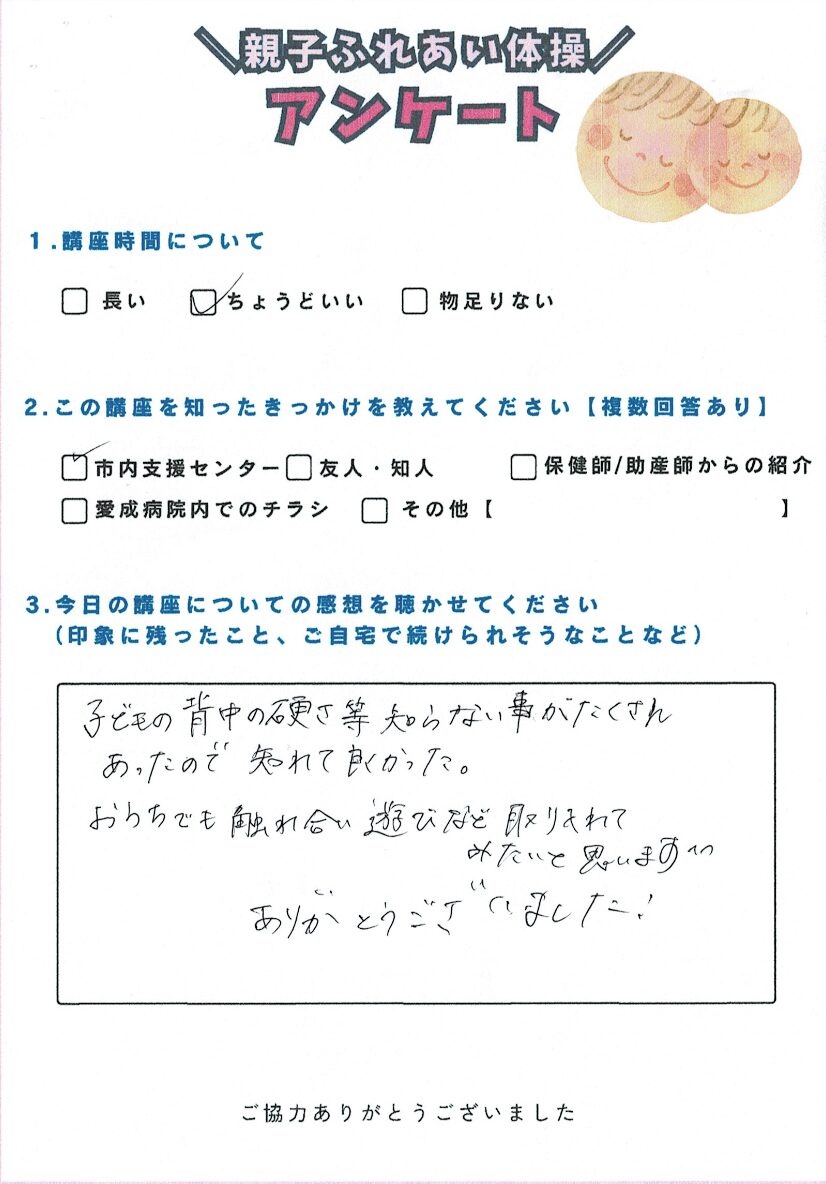 親子ふれあい体操
アンケート
1.講座時間について
□ 長い ☑ ちょうどいい □ 物足りない
2.この講座を知ったきっかけを教えてください【複数回答あり】
☑ 市内支援センター □ 友人・知人 □ 保健師/助産師からの紹介
□ 愛成病院内でのチラシ □ その他【 】
3.今日の講座についての感想を聴かせてください
(印象に残ったこと、ご自宅で続けられそうなことなど)
子どもの背中の硬さ等 知らない事がたくさん
あったので 知れて良かった。
おうちでも 触れ合い 遊びなど 取り入れて
みたいと思います
ありがとうございました!
ご協力ありがとうございました